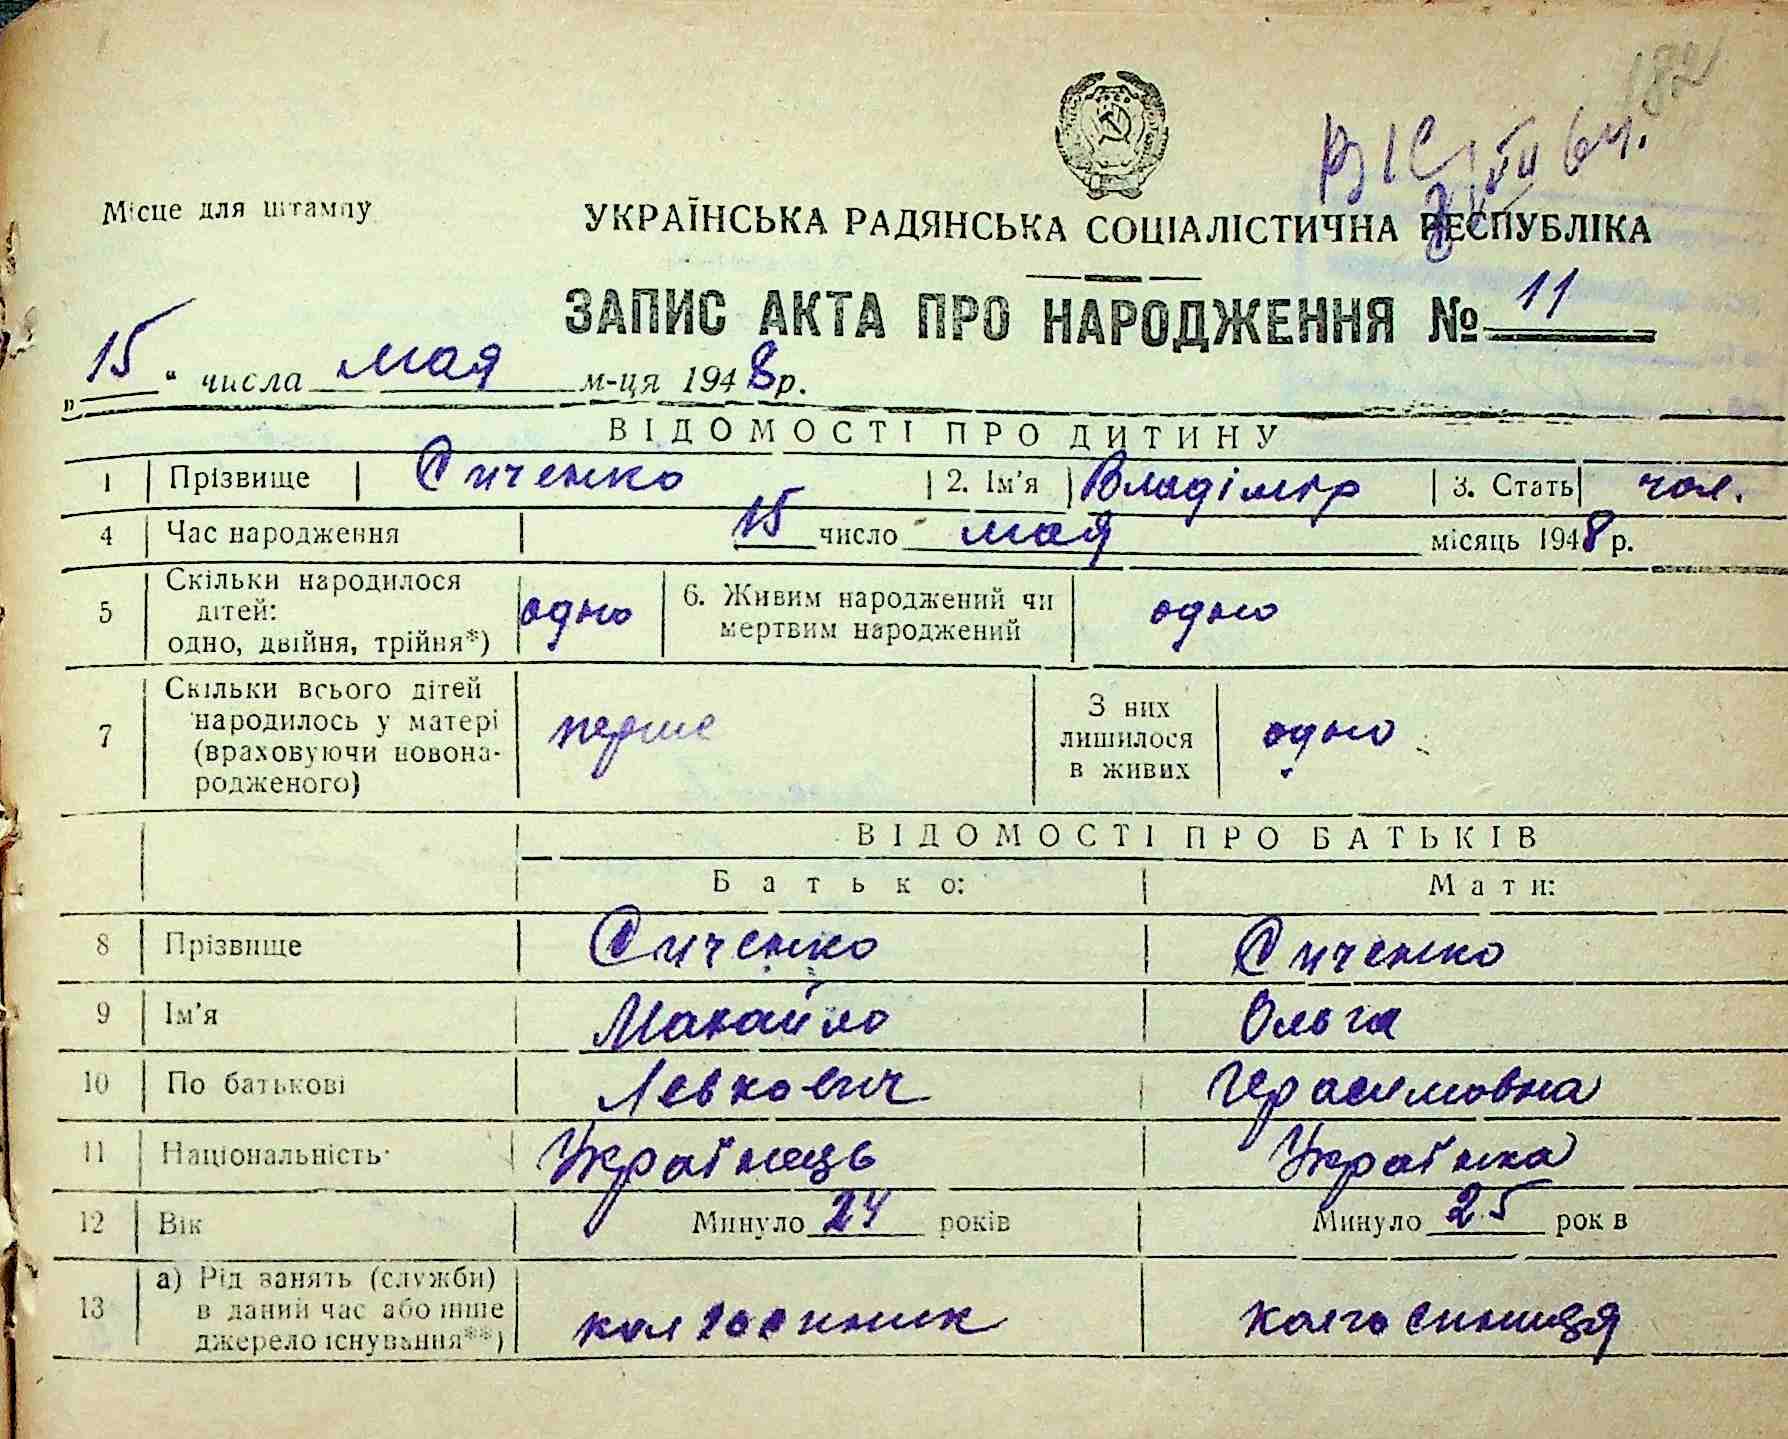 182
Місце для штампу
УКРАЇНСЬКА РАДЯНСЬКА СОЦІАЛІСТИЧНА РЕСПУБЛІКА
ЗАПИС АКТА ПРО НАРОДЖЕННЯ № 11
„15“ числа мая м-ця 1948 р.
ВІДОМОСТІ ПРО ДИТИНУ
1 Прізвище Сиченко 2. Ім'я Владімір 3. Стать чол.
4 Час народження 15 число мая місяць 1948 р.
5 Скільки народилося дітей: одно, двійня, трійня*) одно 6. Живим народжений чи мертвим народжений одно
7 Скільки всього дітей народилось у матері (враховуючи новонародженого) перше З них лишилося в живих одно
ВІДОМОСТІ ПРО БАТЬКІВ
Батько: Мати:
8 Прізвище Сиченко Сиченко
9 Ім'я Макайло Ольга
10 По батькові Левкович Герасимовна
11 Національність Українець Українка
12 Вік Минуло 24 років Минуло 25 рок в
13 а) Рід занять (служби) в даний час або інше джерело існування**) колгоспник колгоспниця